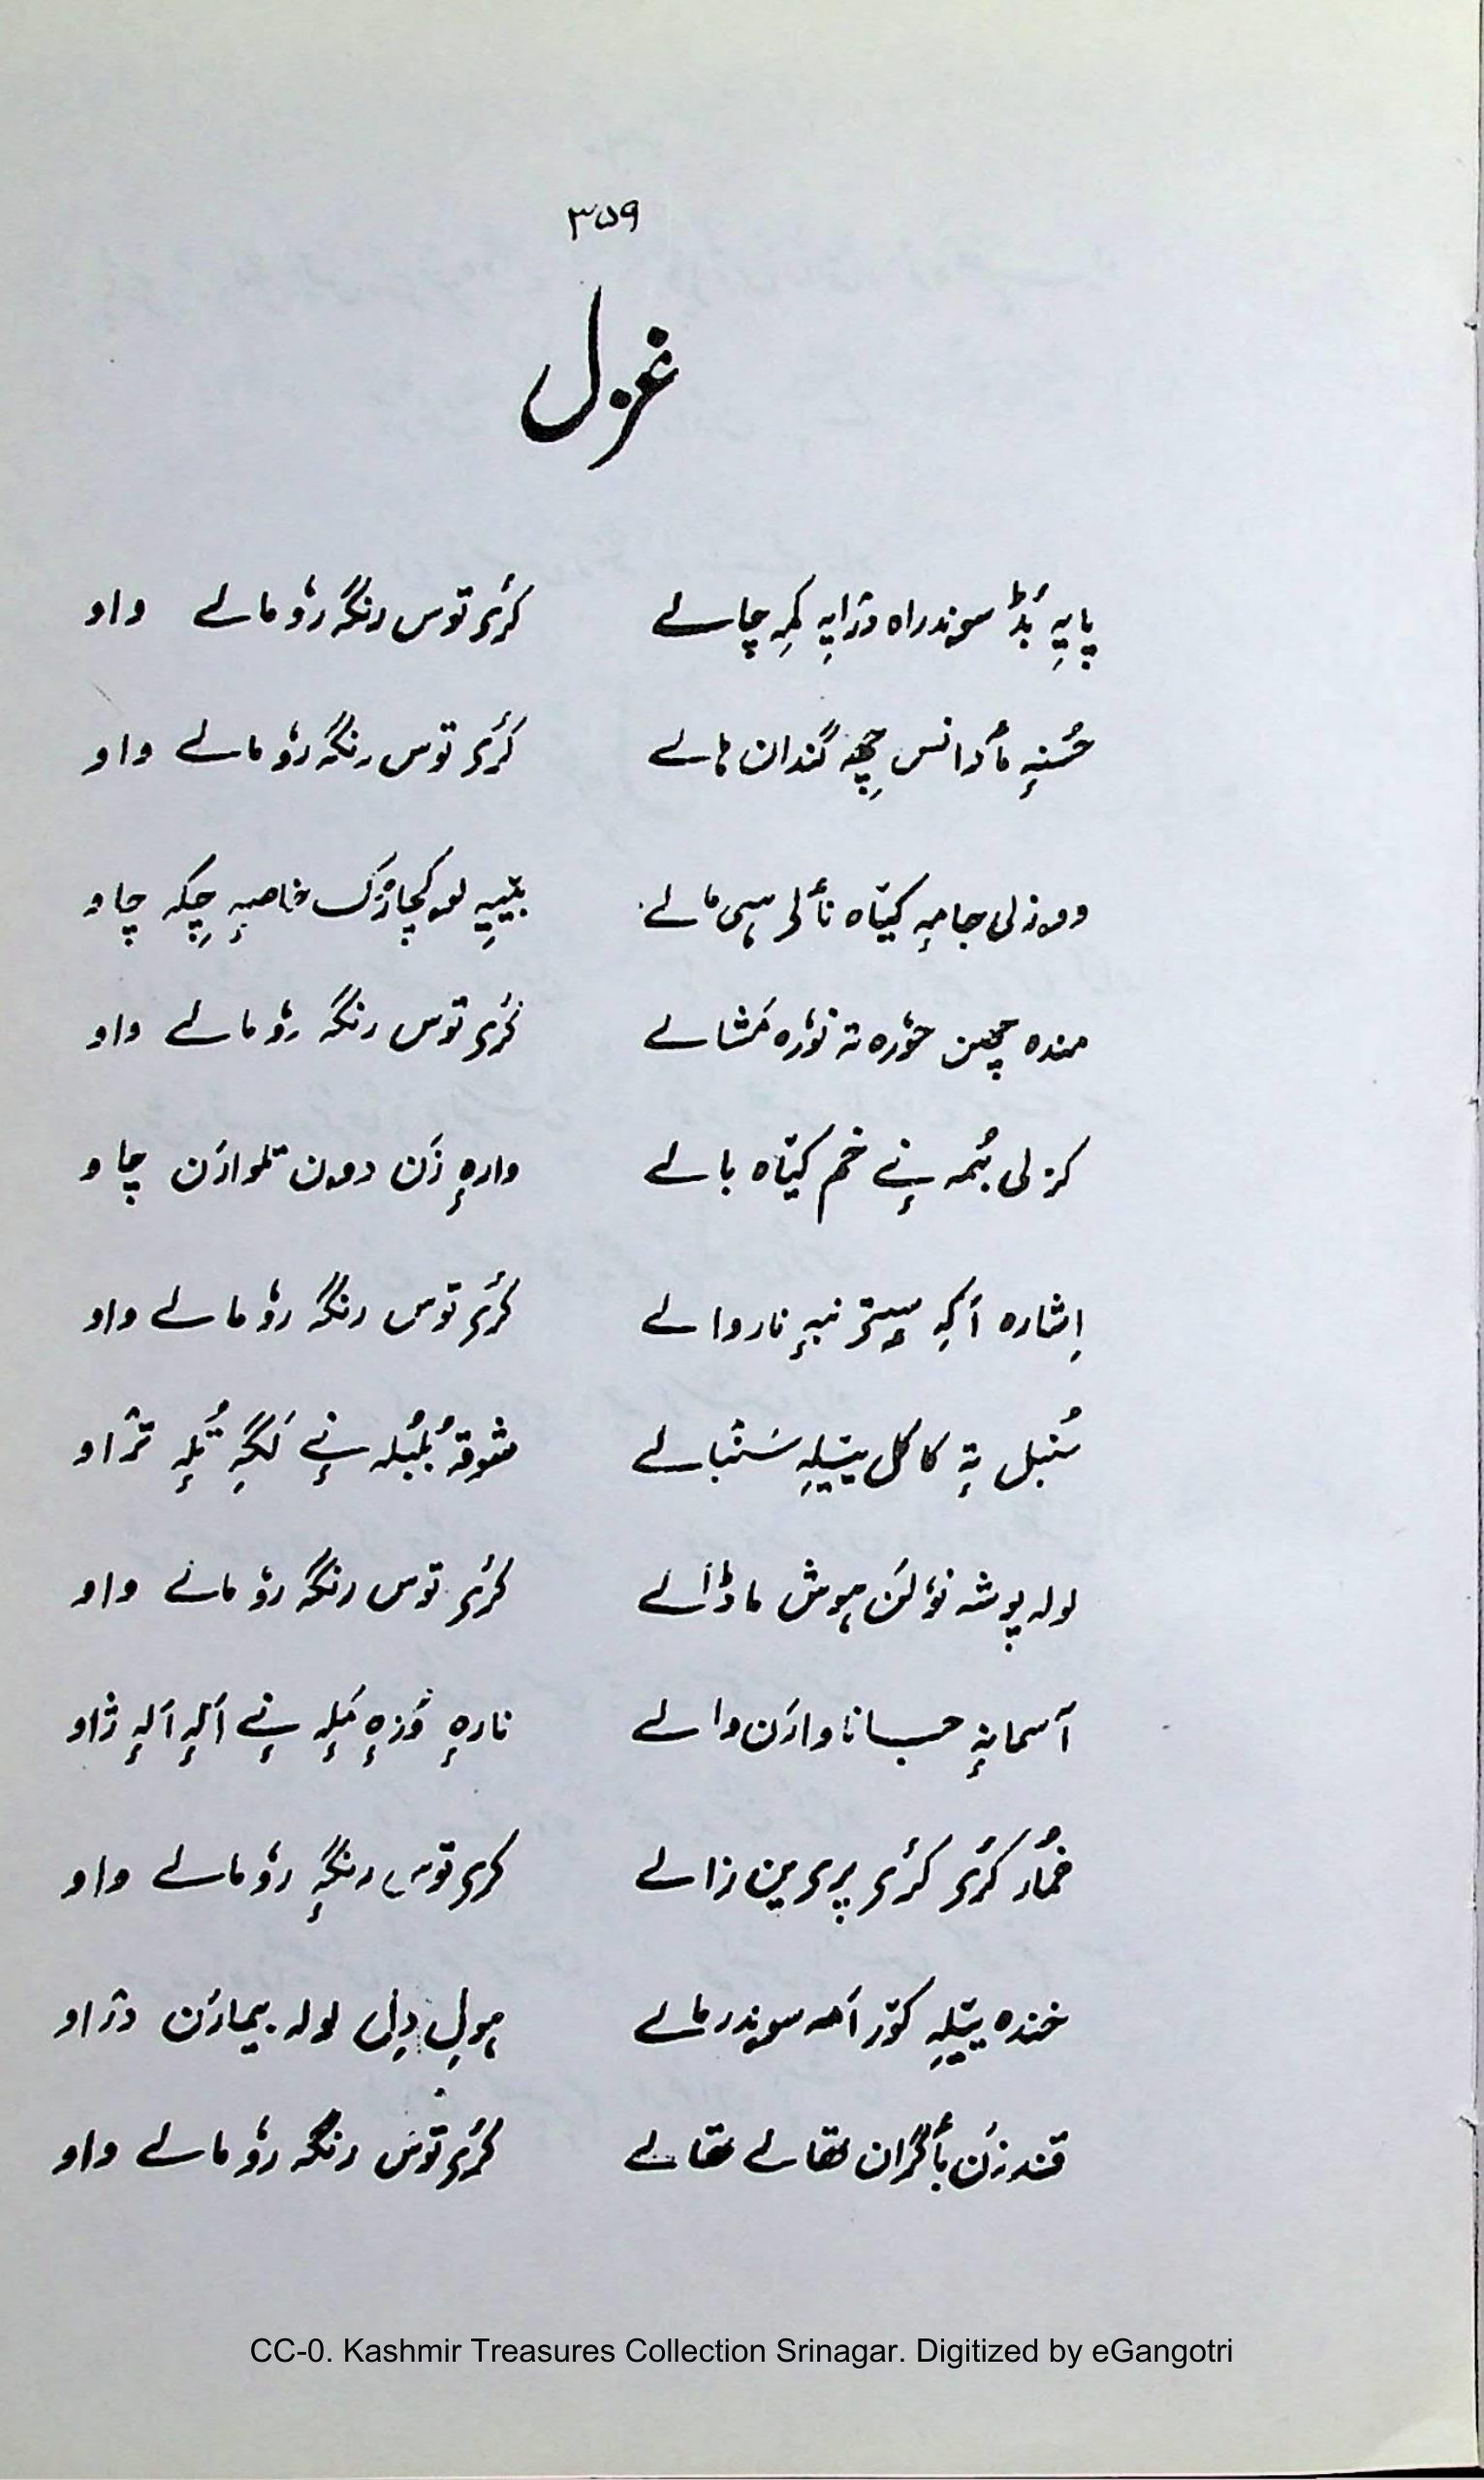 ۳۵۹
غزل
پایہِ بُڈ سوندراہ دژایہِ کمہِ چالے کرٔی توس رنگہ روٗمالے واو
حُسنہٕ مٲدانس چھِ گندان ہالے کرٔی توس رنگہ روٗمالے واو
ووزلی جامہٕ کیّاہ نٲلی ہی مالے بیّیہِ لوکچارُک خاصہٕ چکہِ چاو
منده چھن حوٗره تہ نوٗره مَشالے کرٔی توس رنگہ روٗمالے واو
کزلی بُمہ نٕے خم کیّاہ بالے وارہٕ زَن دون تلوارَن چاو
اِشاره اَکہِ سیتی نبہٕ نار والے کرٔی توس رنگہ روٗمالے واو
سُنبل تہٕ کاکل ییّلہِ سَنبالے شوقہٕ بُلبُلہ نٕے لَگہِ تُلہٕ تراو
لولہ پوشہ نوٗلَن ہوش ما ڈالے کرٔی توس رنگہ روٗمالے واو
آسمانہٕ حسابا وارَن والے نارہٕ وُزہٕ مَلہٕ نٕے اَلہٕ اَلہٕ ژاو
خمُار کرٔی کرٔی پری مین زالے کرٔی توس رنگہٕ روٗمالے واو
خنده ییّلہِ کوّر اَمہ سوندر مالے ہولِ دِلِ لولہ بیمارَن دژاو
قند زَن بٲگران تھالے تھالے کرٔی توس رنگہ روٗمالے واو
CC-0. Kashmir Treasures Collection Srinagar. Digitized by eGangotri